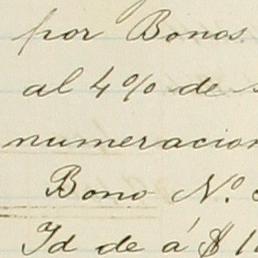 por Bonos
al 4% de
numeracion
Bono N.º
Id de á $ 1